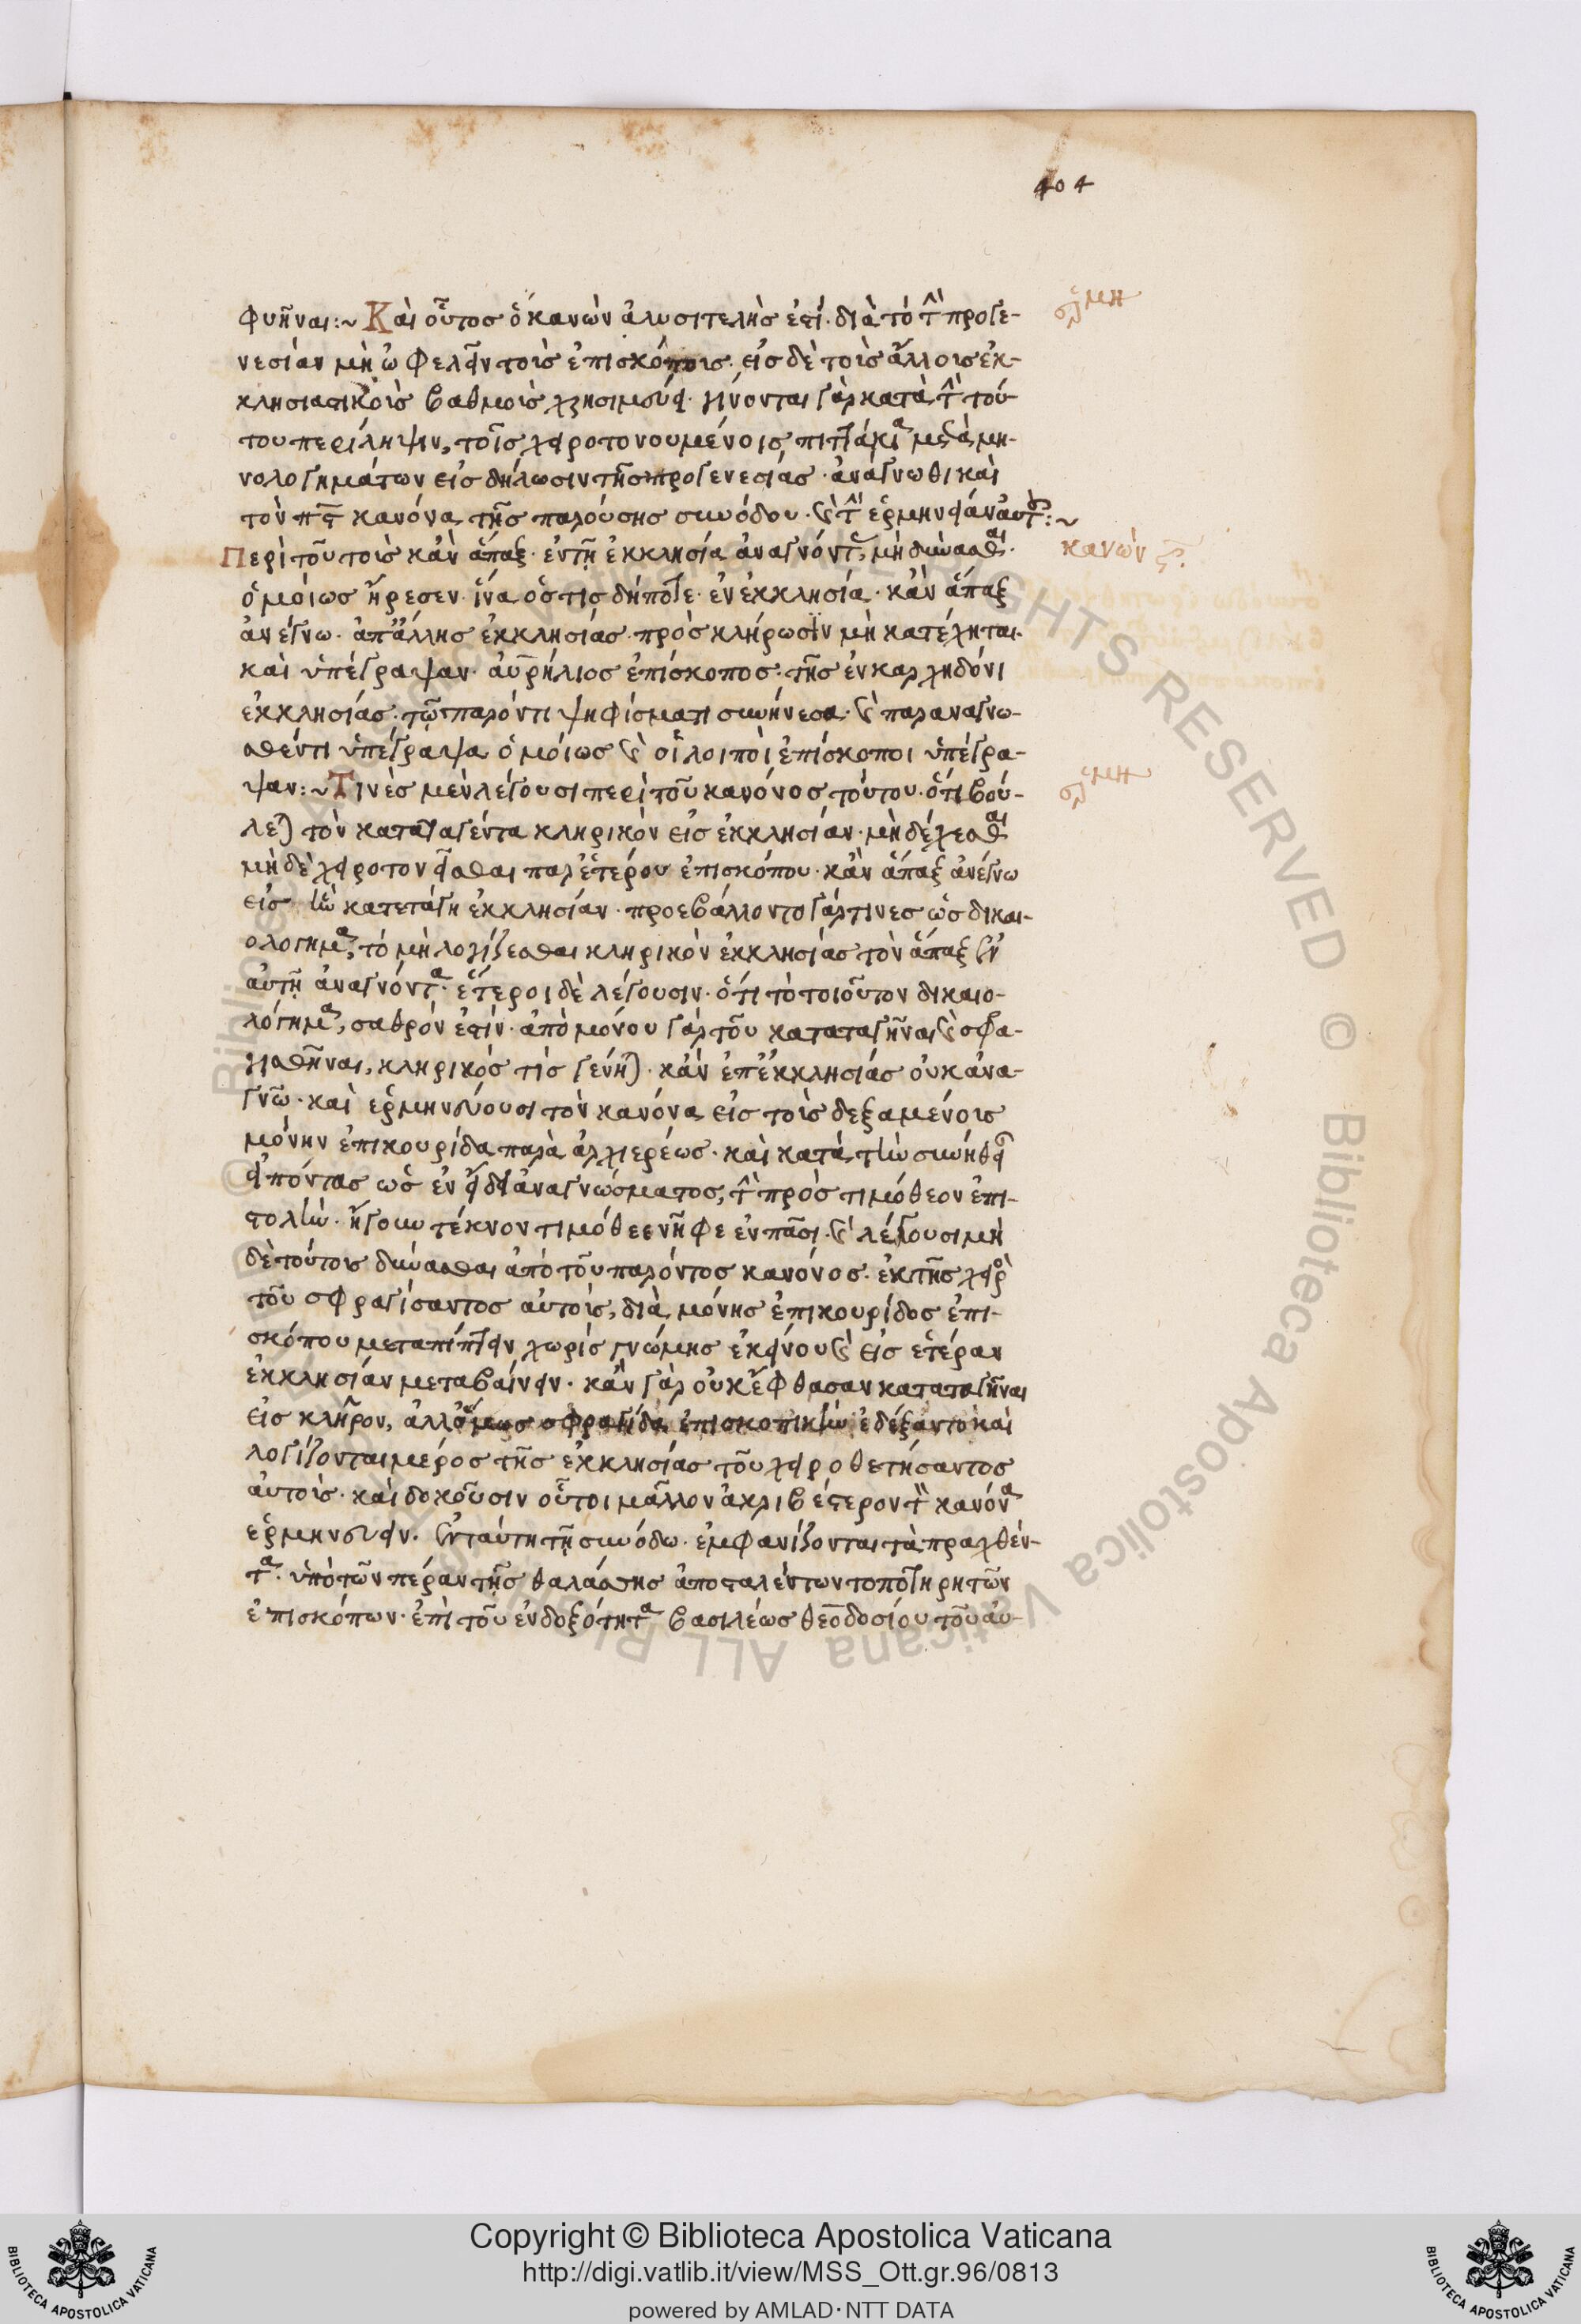 404
φυῆναι:~ Καὶ οὗτος ὁ κανὼν ἀλυσιτελής ἐστι· διὰ τὸ τὴν προγε-
νεσίαν μὴ ὠφελεῖν τοῖς ἐπισκόποις· εἰς δὲ τοῖς ἄλλοις ἐκ-
κλησιαστικοῖς βαθμοῖς χρησιμεύει· γίνονται γὰρ κατὰ τὴν τού-
του περίληψιν, τοῖς χειροτονουμένοις πιττάκια μετὰ μη-
νολογημάτων εἰς δήλωσιν τῆς προγενεσίας· ἀνάγνωθι καὶ
τὸν πϛ κανόνα τῆς παρούσης συνόδου· καὶ τὴν ἑρμηνείαν αὐτοῦ:~
Περὶ τοῦ τοῖς κἂν ἅπαξ· ἐν τῇ ἐκκλησία ἀναγνόντας, μὴ δύνασθαι·
κανὼν
ὁμοίως ἤρεσεν· ἵνα ὅστις δήποτε· ἐν ἐκκλησία· κἂν ἅπαξ
ἀνέγνω· ἀπ ἄλλης ἐκκλησίας· πρὸς κλήρωσιν μὴ κατέχηται·
καὶ ὑπέγραψαν· αὐρήλιος ἐπίσκοπος· τῆς ἐν καρχηδόνι
ἐκκλησίας· τῷ παρόντι ψηφίσματι συνήνεσα· καὶ παραναγνω-
σθέντι ὑπέγραψα ὁμοίως καὶ οἱ λοιποὶ ἐπίσκοποι ὑπέγρα-
ψαν:~ Τινὲς μὲν λέγουσι περὶ τοῦ κανόνος τούτου· ὅτι βού-
λεται τὸν καταταγέντα κληρικὸν εἰς ἐκκλησίαν· μὴ δέχεσθαι
μὴ δὲ χειροτονεῖσθαι παρ ἑτέρου ἐπισκόπου· κἂν ἅπαξ ἀνέγνω
εἰς ἣν κατετάγη ἐκκλησίαν· προεβάλλοντο γάρ τινες ὡς δικαι-
ολόγημα, τὸ μὴ λογίζεσθαι κληρικὸν ἐκκλησίας τὸν ἅπαξ ἐν
αὐτῇ ἀναγνόντα· ἕτεροι δὲ λέγουσιν· ὅτι τὸ τοιοῦτον δικαιο-
λόγημα, σαθρόν ἐστιν· ἀπὸ μόνου γὰρ τοῦ καταταγῆναι καὶ σφρα-
γισθῆναι, κληρικός τις γένηται· κἂν ἐπ ἐκκλησίας οὐκ ἀνα-
γνῶ· καὶ ἑρμηνεύουσι τὸν κανόνα εἰς τοῖς δεξαμένοις
μόνην ἐπικουρίδα παρὰ ἀρχιερέως· καὶ κατὰ τὴν συνήθειαν
εἰπόντας ὡς ἐν εἴδει ἀναγνώσματος, τὴν πρὸς τιμόθεον ἐπι-
στολὴν· ἤγουν τέκνον τιμόθεε νῆφε ἐν πᾶσι· καὶ λέγουσι μὴ
δὲ τούτοις δύνασθαι ἀπὸ τοῦ παρόντος κανόνος· ἐκ τῆς χειρὸς
τοῦ σφραγίσαντος αὐτοῖς, διὰ μόνης ἐπικουρίδος ἐπι-
σκόπου μεταπίπτειν χωρὶς γνώμης ἐκείνου καὶ εἰς ἑτέραν
ἐκκλησίαν μεταβαίνειν· κἂν γὰρ οὐκ ἔφθασαν καταταγῆναι
εἰς κλῆρον, ἀλλ ὅμως σφραγίδα ἐπισκοπικὴν ἐδέξαντο καὶ
λογίζονται μέρος τῆς ἐκκλησίας τοῦ χειροθετήσαντος
αὐτοῖς· καὶ δοκοῦσιν οὗτοι μᾶλλον ἀκριβέστερον τὸν κανόνα
ἑρμηνεύειν. ἐν ταύτη τῇ συνόδω· ἐμφανίζονται τὰ πραχθέν-
τα· ὑπὸ τῶν πέραν τῆς θαλάσσης ἀποσταλέντων τοποτηρητῶν
ἐπισκόπων· ἐπὶ τοῦ ἐνδοξότητα βασιλέως θεοδοσίου τοῦ αὐ-
Copyright © Biblioteca Apostolica Vaticana
http://digi.vatlib.it/view/MSS_Ott.gr.96/0813
powered by AMLAD·NTT DATA
BIBLIOTECA APOSTOLICA VATICANA
BIBLIOTECA APOSTOLICA VATICANA
© Biblioteca Apostolica Vaticana ALL RIGHTS RESERVED